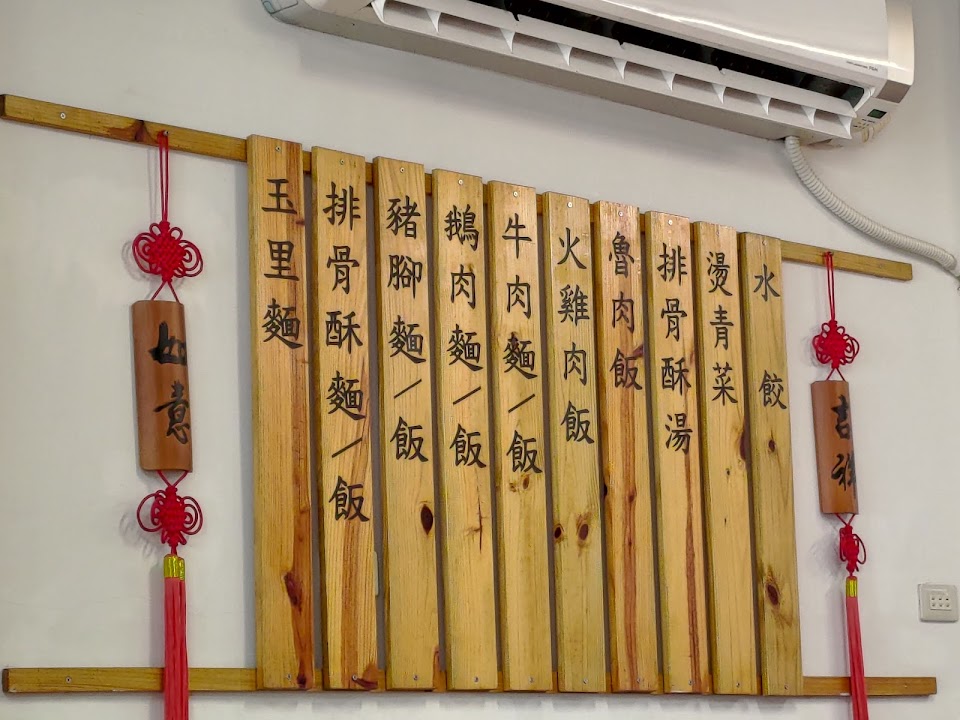 吉祥
水餃
燙青菜
排骨酥湯
魯肉飯
火雞肉飯
牛肉麵/飯
鵝肉麵/飯
豬腳麵/飯
排骨酥麵/飯
玉里麵
如意